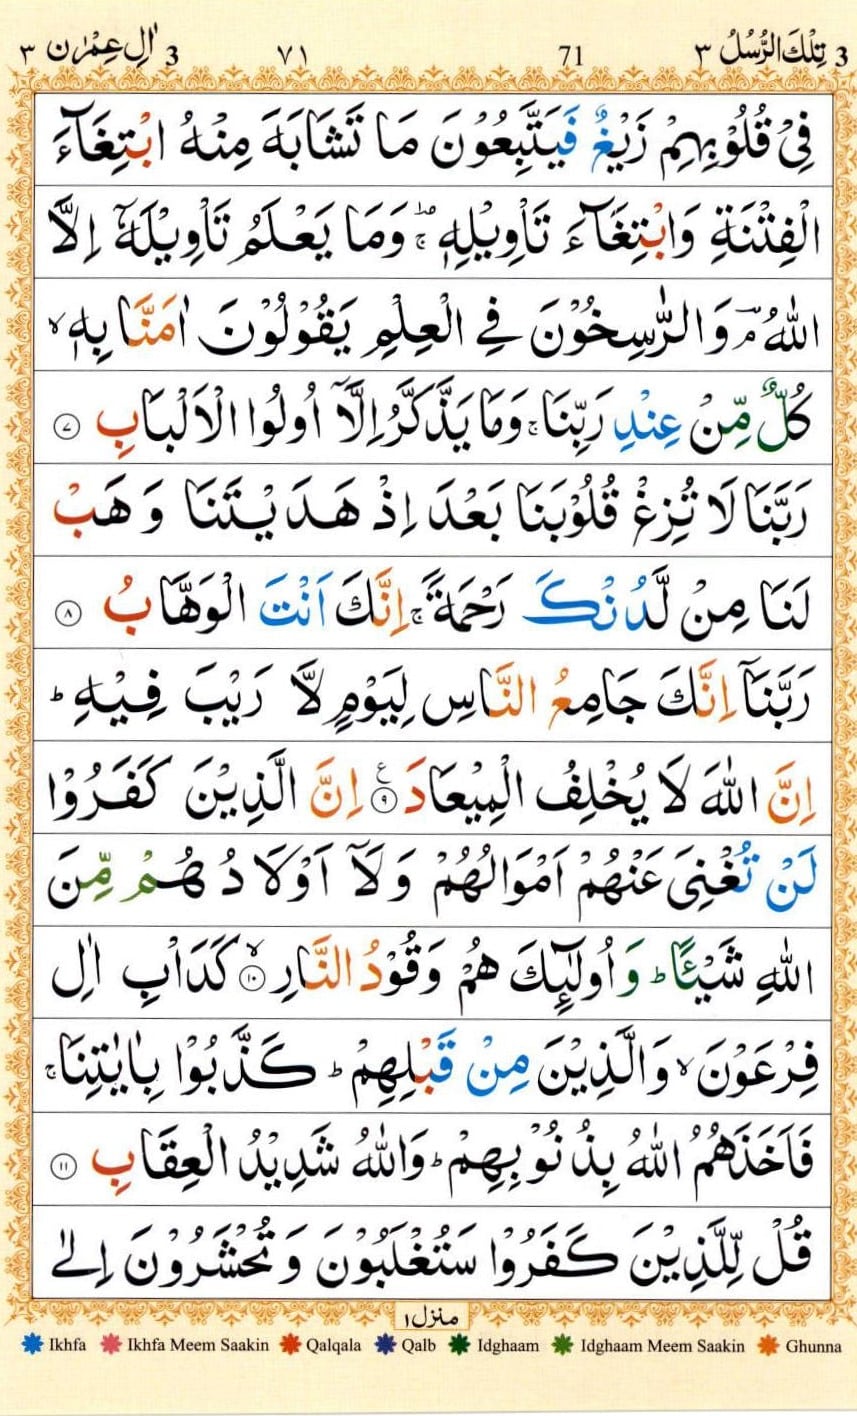 3 تِلْكَ الرُّسُلُ ٣ 71 ٧١ 3 اٰلِ عِمْرٰن ٣
فِيْ قُلُوْبِهِمْ زَيْغٌ فَيَتَّبِعُوْنَ مَا تَشَابَهَ مِنْهُ ابْتِغَآءَ
الْفِتْنَةِ وَابْتِغَآءَ تَاْوِيْلِهٖ ۚ وَمَا يَعْلَمُ تَاْوِيْلَهٗٓ اِلَّا
اللّٰهُ ۘ وَالرّٰسِخُوْنَ فِي الْعِلْمِ يَقُوْلُوْنَ اٰمَنَّا بِهٖ ۙ
كُلٌّ مِّنْ عِنْدِ رَبِّنَا ۚ وَمَا يَذَّكَّرُ اِلَّآ اُولُوا الْاَلْبَابِ ٧
رَبَّنَا لَا تُزِغْ قُلُوْبَنَا بَعْدَ اِذْ هَدَيْتَنَا وَهَبْ
لَنَا مِنْ لَّدُنْكَ رَحْمَةً ۚ اِنَّكَ اَنْتَ الْوَهَّابُ ٨
رَبَّنَآ اِنَّكَ جَامِعُ النَّاسِ لِيَوْمٍ لَّا رَيْبَ فِيْهِ ؕ
اِنَّ اللّٰهَ لَا يُخْلِفُ الْمِيْعَادَ ٩ ع اِنَّ الَّذِيْنَ كَفَرُوْا
لَنْ تُغْنِيَ عَنْهُمْ اَمْوَالُهُمْ وَلَآ اَوْلَادُهُمْ مِّنَ
اللّٰهِ شَيْـًٔا ؕ وَاُولٰٓئِكَ هُمْ وَقُوْدُ النَّارِ ۙ ١٠ كَدَاْبِ اٰلِ
فِرْعَوْنَ ۙ وَالَّذِيْنَ مِنْ قَبْلِهِمْ ؕ كَذَّبُوْا بِاٰيٰتِنَا ۚ
فَاَخَذَهُمُ اللّٰهُ بِذُنُوْبِهِمْ ؕ وَاللّٰهُ شَدِيْدُ الْعِقَابِ ١١
قُلْ لِّلَّذِيْنَ كَفَرُوْا سَتُغْلَبُوْنَ وَتُحْشَرُوْنَ اِلٰى
منزل ١
Ikhfa Ikhfa Meem Saakin Qalqala Qalb Idghaam Idghaam Meem Saakin Ghunna